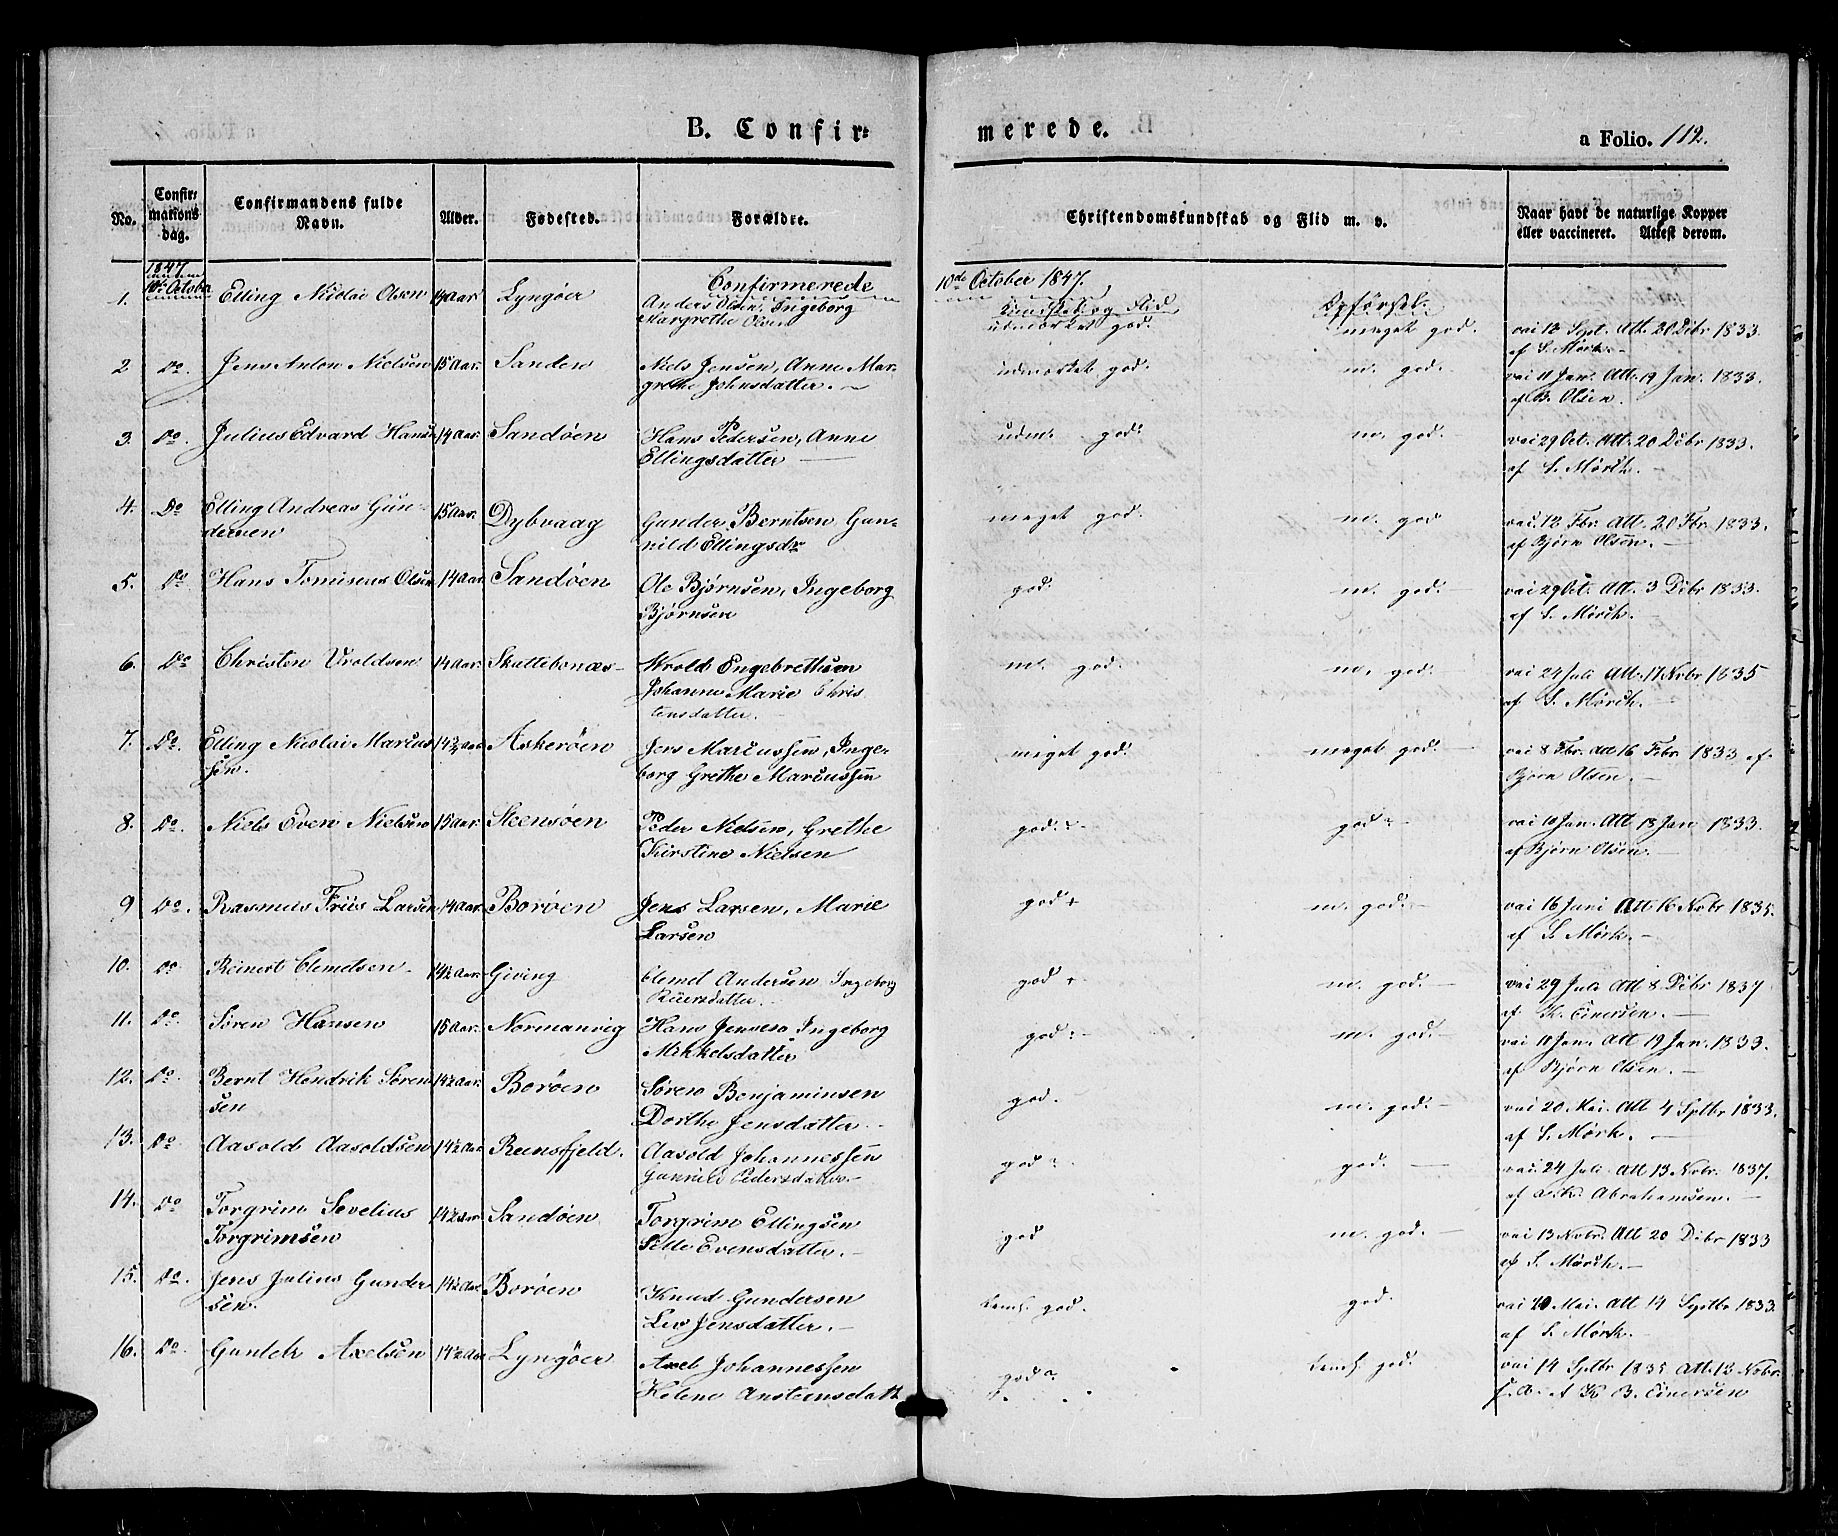 B. Confir=
merede.
a Folio. 112.
No.
Confir=
mations
dag.
Confirmandens fulde
Navn.
Alder.
Fødested.
Forældre.
Christendomskundskab og Flid m. v.
Naar havt de naturlige Kopper
eller vaccineret. Attest derom.
1847
10de October
Confirmerede
10de October 1847.
Kundskab og Flid
Opförsel.
1. Elling Nicolai Olsen 14 Aar Lyngöer Anders Olsen, Ingeborg
Margrethe Olsen
udmærket god. meget god. vai 18 Sept. Att. 20 Dcbr 1833.
af S. Mörch.
2. Do. Jens Anton Nielsen 15 Aar. Sanden Niels Jensen, Anne Mar=
grethe Johnsdatter.
udmærket god. m. god. vai 11 Jan. Att. 19 Jan. 1833.
af B. Olsen.
3. Do. Julius Edvard Hansen 14 Aar. Sandöen Hans Pedersen, Anne
Ellingsdatter
udm. god. m. god. vai 29 Oct. Att. 20 Dcbr 1833.
af S. Mörch.
4. Do Elling Andreas Gun=
dersen 15 Aar. Dybvaag Gunder Berntsen Gun=
nild Ellingsdr
meget god. m. god vai 12 Fbr. Att. 20 Fbr. 1833.
af Bjørn Olsen.
5. Do Hans Tomineus Olsen 14 Aar. Sandöen Ole Bjørnsen, Ingeborg
Bjørnsen
god. m. god. vai 29 Oct. Att. 3 Dcbr 1833.
af S. Mörch.
6. Do Christen Uroldsen 14 Aar. Skuttebonæs Wrold Engebrethsen
Johanne Marie Chris
tensdatter.
m. god. m. god. vai 24 Juli Att. 17 Nvbr 1835
af S. Mörch.
7. Do. Elling Nicolai Marcus
sen. 14 3/4 Aar Askeröen Jens Marcussen, Inge=
borg Grethe Marcussen
meget god. meget god. vai 8 Fbr. Att 16 Febr 1833 af
Bjørn Olsen.
8. Do. Niels Even Nielsen 15 Aar. Steensöen Peder Nielsen, Grethe
Kirstine Nielsen
god. god vai 10 Jan. Att 18 Jan 1833.
af Bjørn Olsen.
9 Do. Rasmus Friis Larsen 14 Aar. Boröen Jens Larsen, Marie
Larsen
god m. god. vai 16 Juni Att 16 Nvbr 1835.
af S. Mörk.
10. Do Reinert Clemetsen 14 1/2 Aar. Giving Clemet Andersen Ingeborg
god m. god. vai 29 Juli Att 8 Dcbr 1837
af K. Einersen.
11. Do. Sören Hansen 15 Aar. Normanvig Hans Jensen Ingeborg
Mikkelsdatter
god. m. god. vai 11 Jan. Att 19 Jan. 1833.
af Bjørn Olsen.
12. Do. Bernt Hendrik Sören
sen 14 1/2 Aar. Boröen Sören Benjaminsen
Dorthe Jensdatter.
god. m. god. vai 20. Mai. Att 4 Sptbr 1833.
af S. Mörk.
13. Do Aasold Aasoldsen 14 1/2 Aar Reensfjeld. Aasold Johannessen
Gunnild Pedersdatter
god. god. vai 24 Juli Att 13 Nvbr. 1837.
af A. K. Abrahamsen.
14. Do Torgrim Sevelius
Torgrimsen 14 1/2 Aar Sandöen Torgrim Ellingsen
Sille Evensdatter.
god m. god. vai 13 Nvbr. Att 20 Dcbr 1833
af S. Mörch.
15. Do. Jens Julius Gunder
sen. 14 1/2 Aar Boröen Knud Gundersen
Liv Jensdatter.
temf. god. god. vai 20 Mai. Att 14 Sptbr 1833.
af S. Mörk.
16. Do. Gunder Axelsen 14 1/2 Aar Lyngöer Axel Johannessen
Helene Ansteensdatt
god temf. god. vai 14 Sptbr 1835 Att. 12 Nvbr.
K. B. Einersen